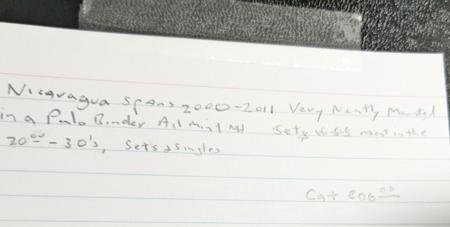 Nicaragua spans 2000-2011 Very Neatly Mounted
in a Palo Binder All mint NH sets & S/S most in the
20⁰⁰ - 30's, sets & singles
Cat 806⁰⁰